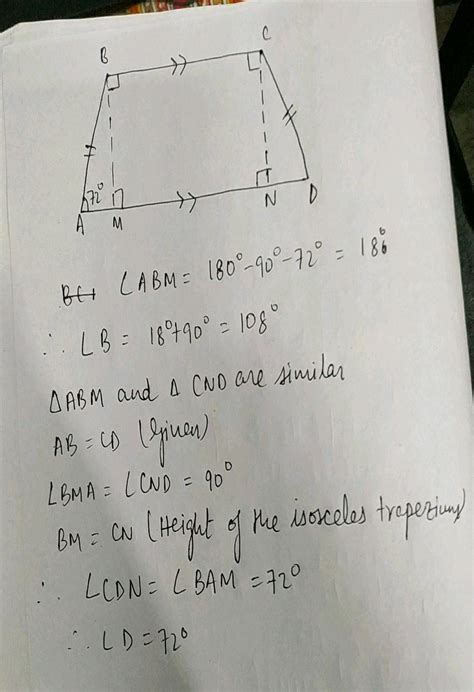 B C
72°
A M N D
∠ABM = 180°-90°-72° = 18°
∴ ∠B = 18°+90° = 108°
△ABM and △ CND are similar
AB = CD (Given)
∠BMA = ∠CND = 90°
BM = CN (Height of the isosceles trapezium)
∴ ∠CDN = ∠BAM = 72°
∴ ∠D = 72°